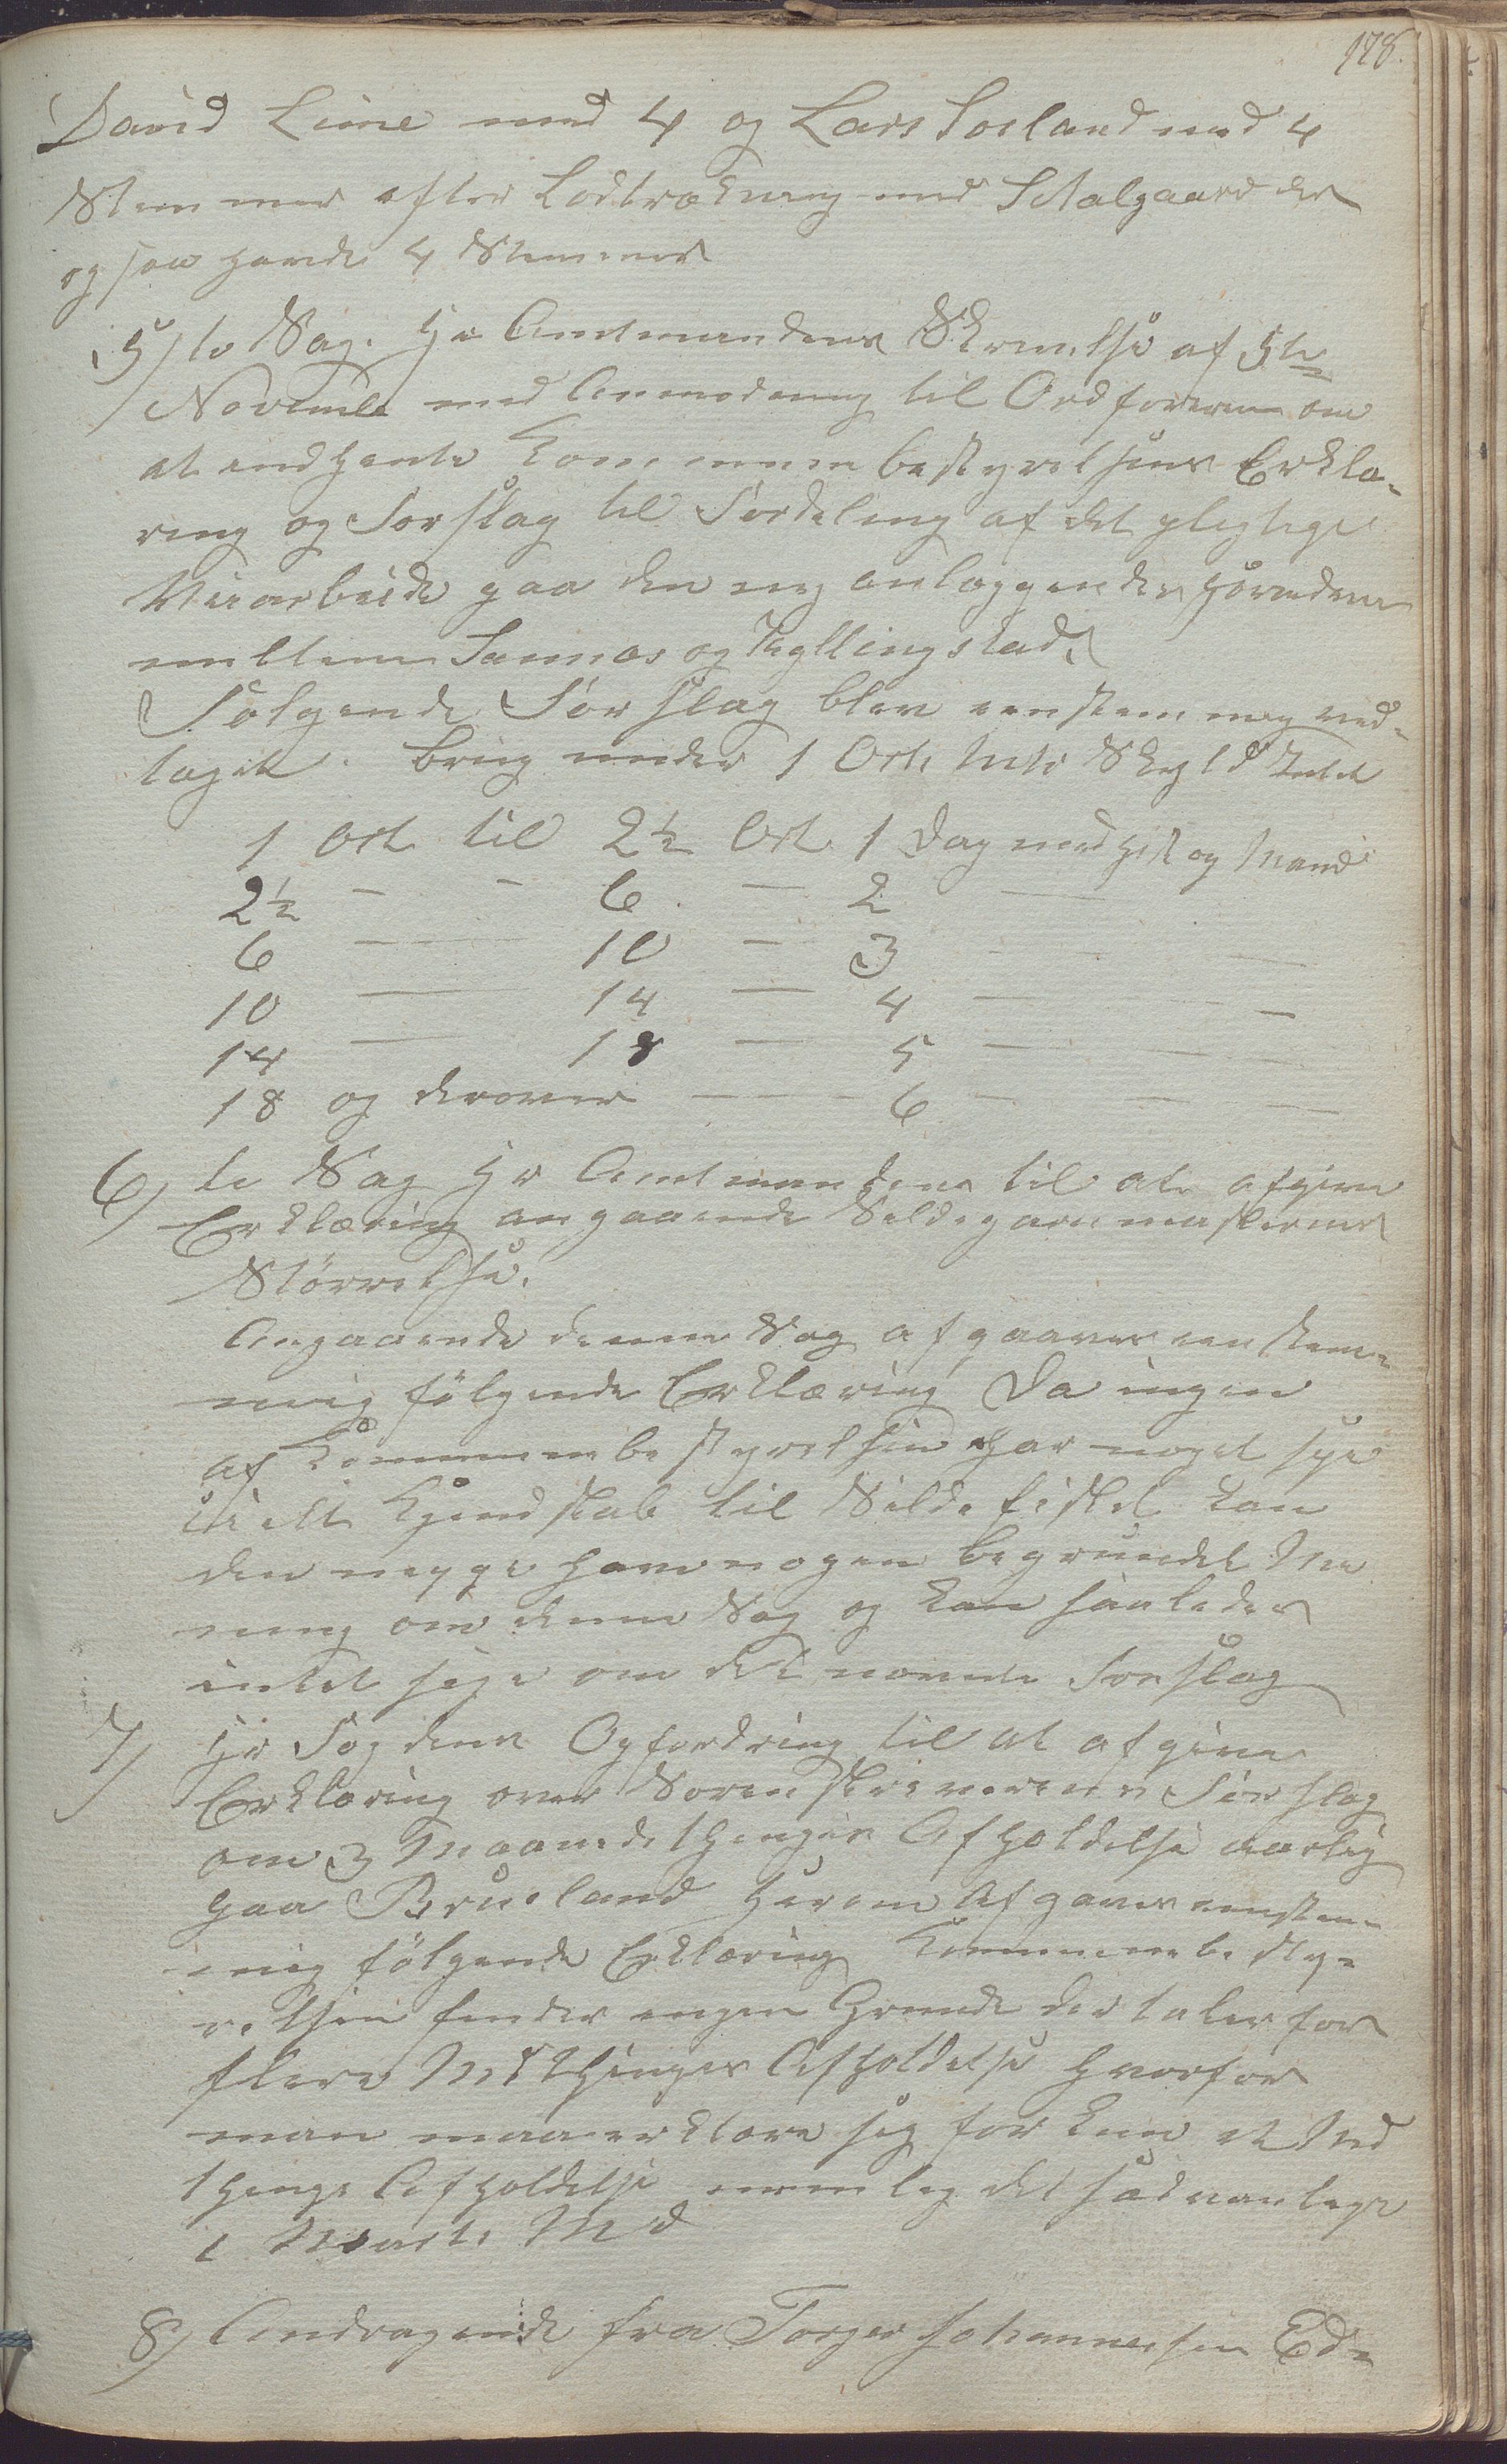 178.
David Lima med 4 og Lars Soeland med 4
Stemmer efter Lodtrækning med Skalgaard der
ogsaa havde 4 Stemmer
5/ te Sag. Hr Amtmandens Skrivelse af 5te
Novemb med Anmodning til Ordføreren om
at indhente Kommunebestyrelsens Erklæ-
ring og Forslag til Fordeling af det pligtige
Veiarbeide paa den ny anlæggende Hovedvei
mellem Sannæs og Kyllingstad.
Følgende Forslag blev eenstemmig ved-
taget. Brug under 1 Ort Mrk Skyld Intet
1 Ort til 2½ Ort 1 Dag med Hest og Mand
2½ — - 6 — 2 —
6 — 10 — 3 — —
10 — 14 — 4 — —
14 — 18 — 5 — — —
18 og derover — — - 6 — — —
6/ te Sag Hr Amtmanden til at afgive
Erklæring angaaende Sildegarnmaskernes
Størrelse.
Angaaende denne Sag afgaves eenstem-
mig følgende Erklæring Da ingen
af Kommunebestyrelsen har noget spe
cielt Kjendskab til Sildefisket kan
den neppe have nogen begrundet Me
ning om denne Sag og kan saaledes
intet sige om det nævnte Forslag
7/ Hr Fogdens Opfordring til at afgive
Erklæring over Sorenskriverens Forslag
om 3 Maanedsthinges Afholdelse aarlig
paa Brueland Herom Afgaves eenstem-
mig følgende Erklæring Kommunebesty-
relsen finder ingen Grunde der taler for
flere Mdthinges Afholdelse hvorfor
man maa erklære sig for kun et Md
things Afholdelse nemlig det sædvanlige
i Marts Md
8/ Andragende fra Torger Johannesen Ed-